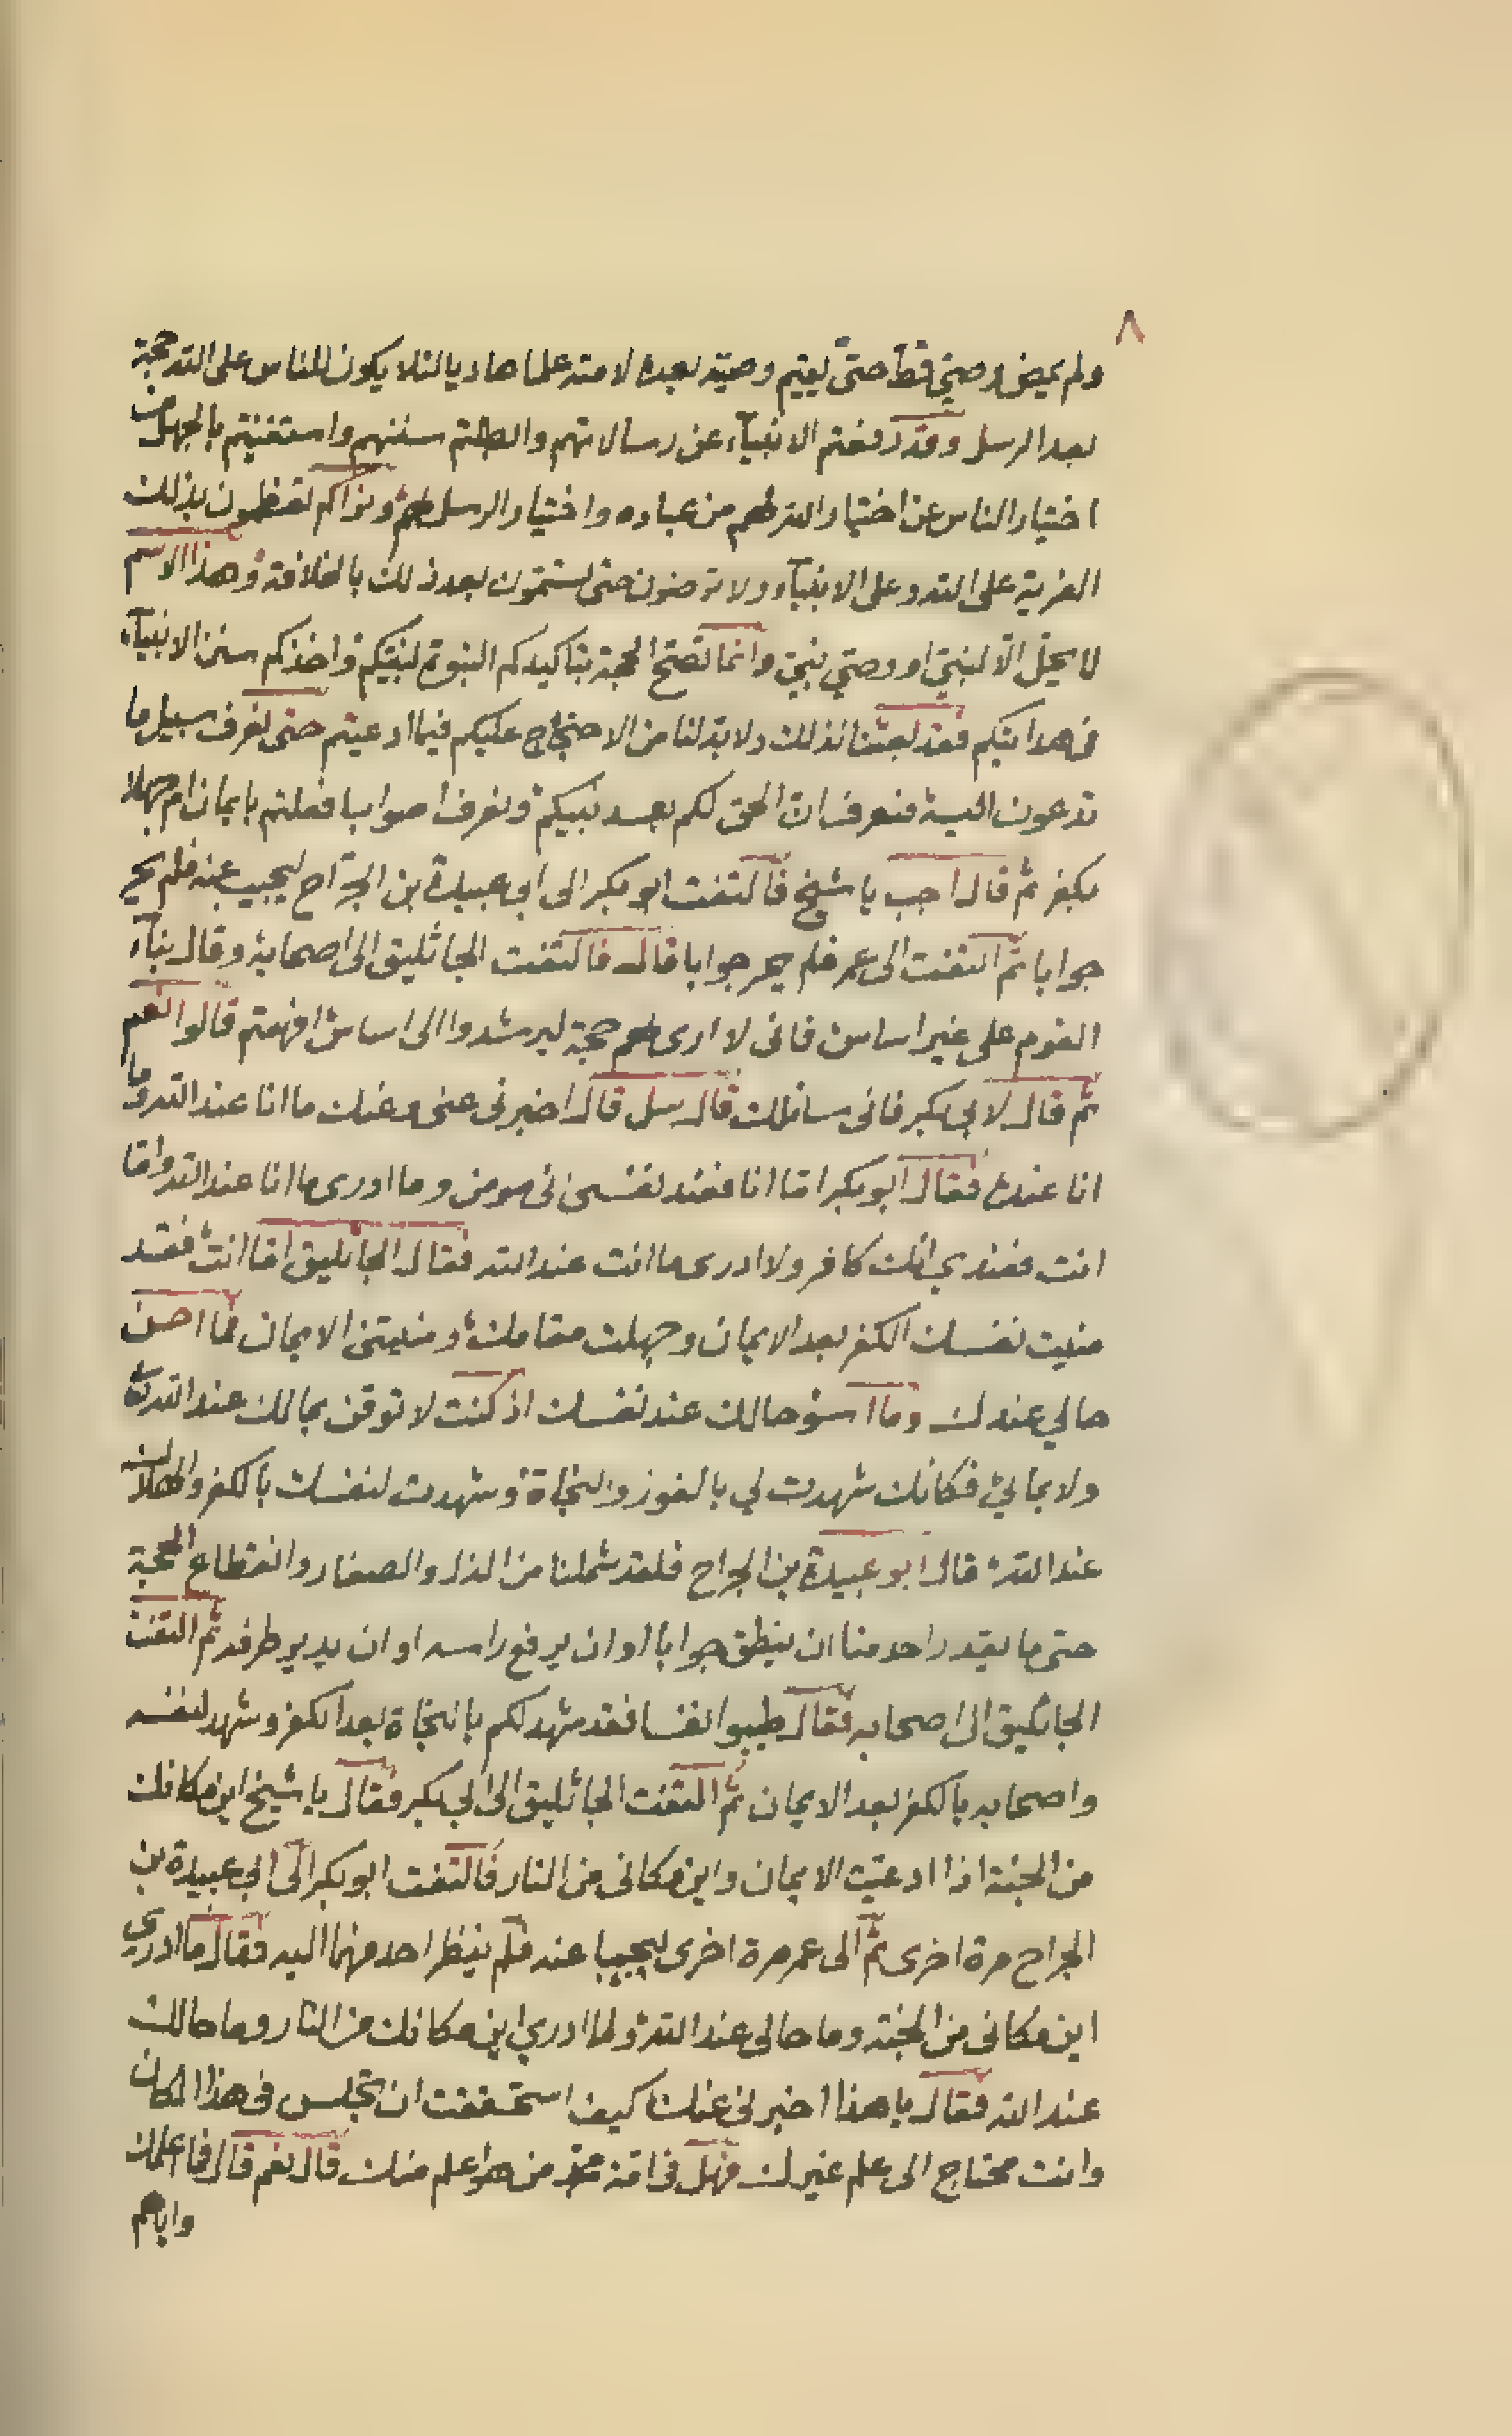 ٨
ولم يمض وصي قط حتى يقيم وصيه بعده لامته علما هاديا لئلا يكون للناس على الله حجة
بعد الرسل وقد دفعتم الانبيآء عن رسالاتهم وابطلتم سننهم واستغنيتم بالجهل من
اختيار الناس عن اختيار الله لهم من عباده واختيار الرسل لهم ونراكم تعظمون بذلك
الفرية على الله وعلى الانبيآء ولا ترضون حتى تستمون بعد ذلك بالخلافة وهذا الاسم
لا يحل الا لنبي او وصي نبي وانما تصح الحجة بتاكيدكم النبوة لنبيكم واخذكم سنن الانبيآء
في هدايتكم فقد بعثنا لذلك ولا بد لنا من الاحتجاج عليكم فيما ادعيتم حتى نعرف سبيل ما
تدعون اليه فنعرف ان الحق لكم بعد نبيكم ونعرف اصوابا فعلتم بايمان ام جهلا
بكفر ثم قال اجب يا شيخ فالتفت ابو بكر الى ابي عبيدة بن الجراح ليجيب عنه فلم يحر
جوابا ثم التفت الى عمر فلم يحر جوابا قال فالتفت الجاثليق الى اصحابه وقال بنآء
القوم على غير اساس فاني لا ارى لهم حجة ليرشدوا الى اساس افهمتم قالوا نعم
ثم قال لابي بكر فاني سائلك قال سل قال اخبرني عني وعنك ما انا عند الله وما
انا عندك فقال ابو بكر اما انا فعند نفسي اني مومن وما ادرى ما انا عند الله واما
انت فعندي انك كافر ولا ادرى ما انت عند الله فقال الجاثليق اما انت فقد
منيت نفسك الكفر بعد الايمان وجهلت مقامك ومنيتني الايمان فما احسن
حالي عندك وما اسؤ حالك عند نفسك اذ كنت لا توقن بمالك عند الله
ولا بمالي فكانك شهدت لي بالفوز والنجاة وشهدت لنفسك بالكفر والهلاك
عند الله قال ابو عبيدة بن الجراح فلقد شملنا من الذل والصغار وانقطاع الحجة
حتى ما يقدر احد منا ان ينطق جوابا او ان يرفع راسه او ان يدير طرفه ثم التفت
الجاثليق الى اصحابه فقال طيبوا انفسا فقد شهد لكم بالنجاة بعد الكفر وشهد لنفسه
واصحابه بالكفر بعد الايمان ثم التفت الجاثليق الى ابي بكر فقال يا شيخ اين مكانك
من الجنة اذا ادعيت الايمان واين مكاني من النار فالتفت ابو بكر الى ابي عبيدة بن
الجراح مرة اخرى ثم الى عمر مرة اخرى ليجيبا عنه فلم ينظر احد منهما اليه فقال ما ادري
اين مكاني من الجنة وما حالي عند الله ولما ادري اين مكانك من النار وما حالك
عند الله فقال يا هذا اخبرني عنك كيف استحققت ان تجلس في هذا المكان
وانت محتاج الى علم غيرك فهل في امة محمد من هو اعلم منك قال نعم قال فما اعلمك
واياهم